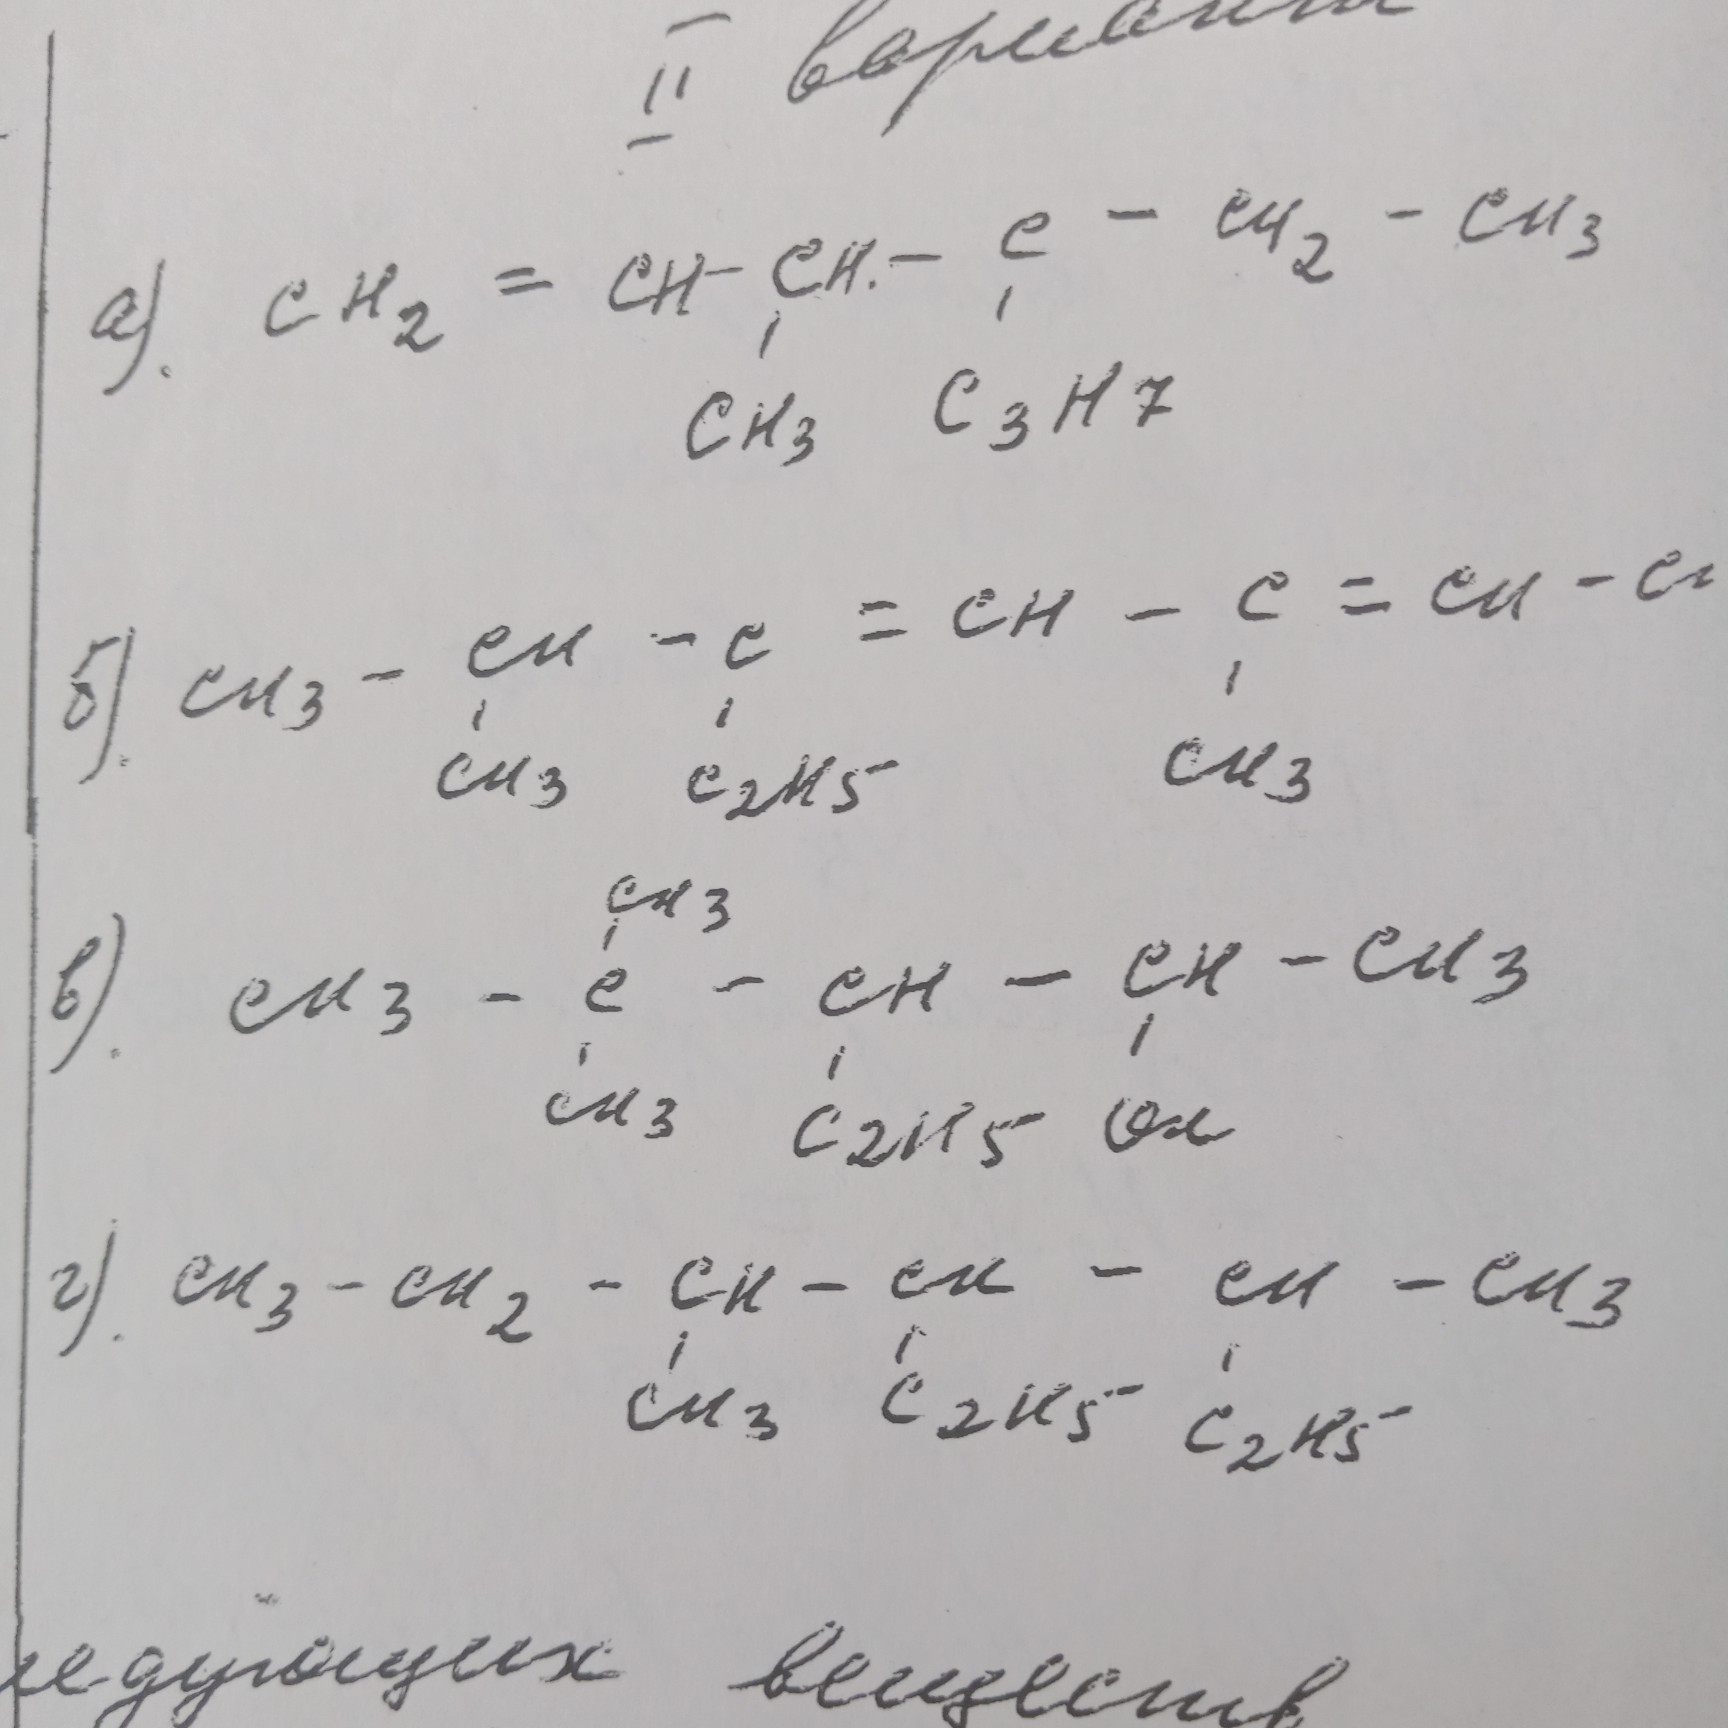 II вариант
а). CH2 = CH - CH - C - CH2 - CH3
CH3 C3H7
б). CH3 - CH - C = CH - C = CH - C
CH3 C2H5 CH3
CH3
в). CH3 - C - CH - CH - CH3
CH3 C2H5 OH
г). CH3 - CH2 - CH - CH - CH - CH3
CH3 C2H5 C2H5
ледующих веществ